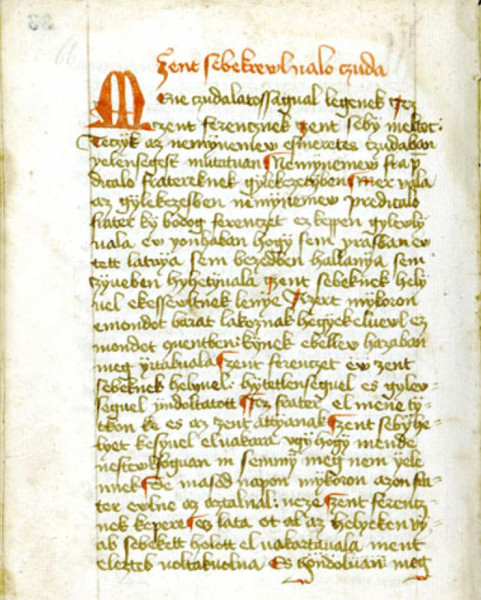 Zent sebekrewl ualo czuda
Mene czudalatossagual legenek
zent ferencznek zent seby meltot
teczyk az nemynemew esmeretes czudaban
yelensegest mutatuan Nemynemew
dicalo fratereknek gylekezetyben Mert vala
az gylekezetben nemynemew predicalo
frater ky bodog ferenczet ez keppen gylewly
uala ew yonhaban hogy sem ew
tett latuya sem bezedben hallanya sem
zyueben hyhetyuala Zent sebeknek hely
uel ekessewltnek lennye Ezert mykoron
emondot barat lakoznak hegyek eluewl ez
mondet kynek ebellew hazaban
meg Zent ferenczet ew zent
sebeknek helyuel hytetlenseguel es gylew-
seguel yndoltatott Ez frater el mene ty-
tkon ke es az zent attyanak Zent seby he-
lyet kesyuel eluakara vgy hogy mende
nestewlfoguan in semmy meg nem yele
nnek De masod napon mykoron azon fra-
ter ewlne az aztalnal neze Zent ferencz-
nek kepere es lata ot al az helyeken vy-
ab sebekett holott el vakartauala ment
elezteb voltakuolna Es gondoluan meg